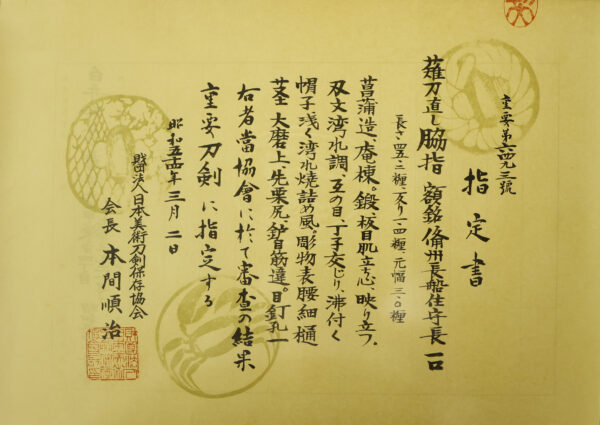 重要第六四九三號
指定書
薙刀直し脇指 額銘 備州長船住守長 一口
長さ四五・二糎、反り一・四糎 元幅三・〇糎
菖蒲造、庵棟。鍛、板目肌立ち心、映り立つ、
刃文湾れ調、互の目、丁子交じり、沸付く
帽子浅く湾れ焼詰め風。彫物表腰細樋
茎大磨上、先栗尻、鑢目筋違。目釘孔一
右者當協會に於て審査の結果
重要刀剣に指定する
昭和五十四年三月二日
財団法人日本美術刀剣保存協会
会長 本間順治